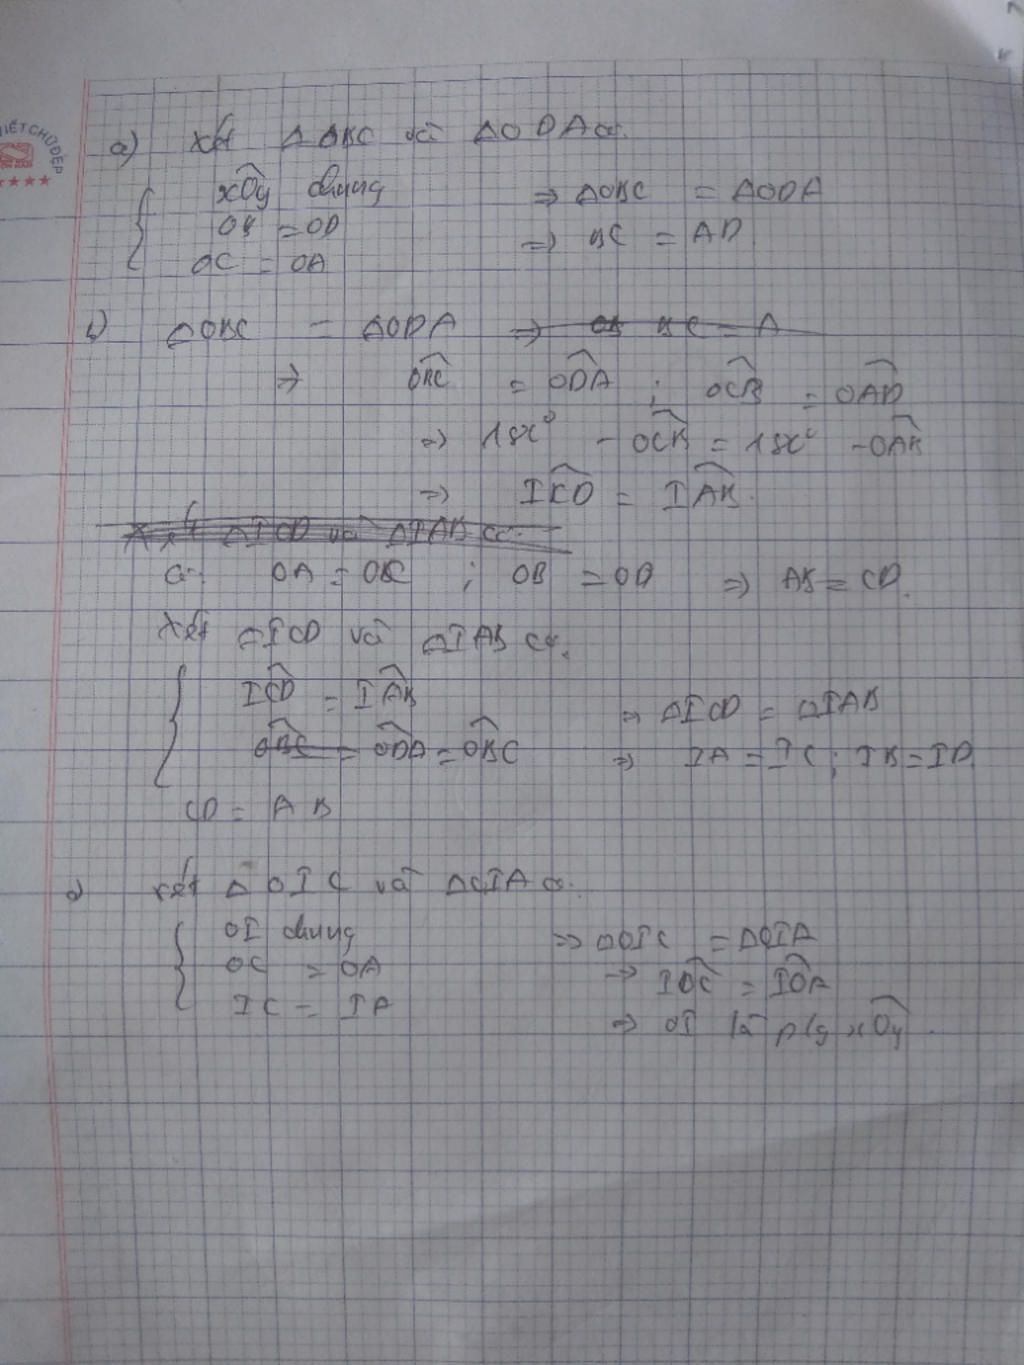 VIẾT CHỮ ĐẸP
a) Xét Δ OBC và Δ ODA có.
xOy chung ⇒ ΔOBC = ΔODA
OB = OD ⇒ BC = AD
OC = OA
b) ΔOBC = ΔODA ⇒ BC = A
⇒ OBC = ODA ; OCB = OAD
⇒ 180° - OCB = 180° - OAB
⇒ ICD = IAB.
Xét ΔICD và ΔIAB có.
Có OA = OC ; OB = OD ⇒ AB = CD.
Xét ΔICD và ΔIAB có.
ICD = IAB ⇒ ΔICD = ΔIAB
OBC = ODA = OBC ⇒ IA = IC ; IB = ID
CD = AB
Xét Δ OIC và ΔOIA có.
OI chung ⇒ ΔOIC = ΔOIA
OC = OA ⇒ IOC = IOA
IC = IA ⇒ OI là p/g xOy.